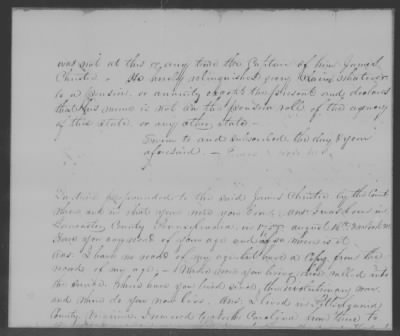 was not at this or any time the Citizen of him James
Christie. He hereby relinquishes every Claim whatever
to a pension or annuity except the present and declares
that his name is not on the pension roll of the agency
of this State or any other State —
Sworn to and subscribed the day & year
aforesaid. —
propounded to the said James Christie by the Court
Where and in what year were you born, Ans. I was born in
County Pennsylvania in August
Have you any record of your age and if so where is it
Ans. I have no record of my age but have a Copy from the
record of my age, — Where were you living when called into
the service. Where have you lived since the revolutionary war
and where do you now live. Ans: I lived in
County Virginia I removed to North Carolina from thence to